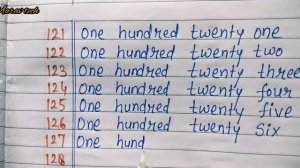 121 One hundred twenty one
122 One hundred twenty two
123 One hundred twenty three
124 One hundred twenty four
125 One hundred twenty five
126 One hundred twenty six
127 One hund
128